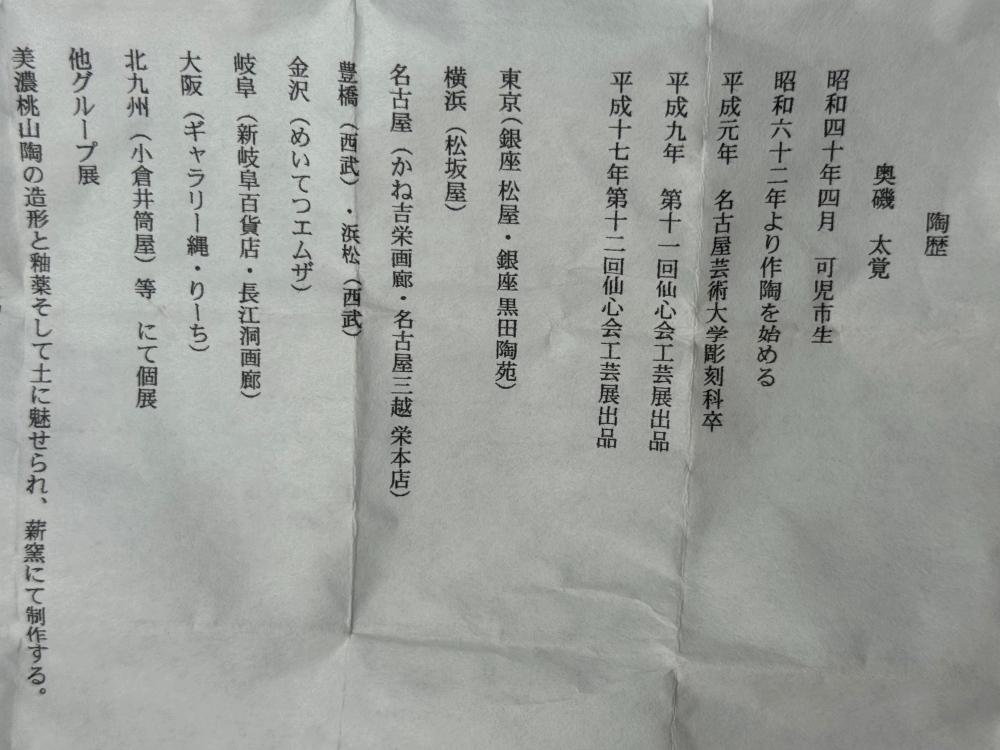 陶歴
奥磯　太覚
昭和四十年四月　可児市生
昭和六十二年より作陶を始める
平成元年　名古屋芸術大学彫刻科卒
平成九年　第十一回仙心会工芸展出品
平成十七年第十二回仙心会工芸展出品
東京（銀座 松屋・銀座 黒田陶苑）
横浜（松坂屋）
名古屋（かね吉栄画廊・名古屋三越 栄本店）
豊橋（西武）・浜松（西武）
金沢（めいてつエムザ）
岐阜（新岐阜百貨店・長江洞画廊）
大阪（ギャラリー縄・りーち）
北九州（小倉井筒屋）等　にて個展
他グループ展
美濃桃山陶の造形と釉薬そして土に魅せられ、薪窯にて制作する。